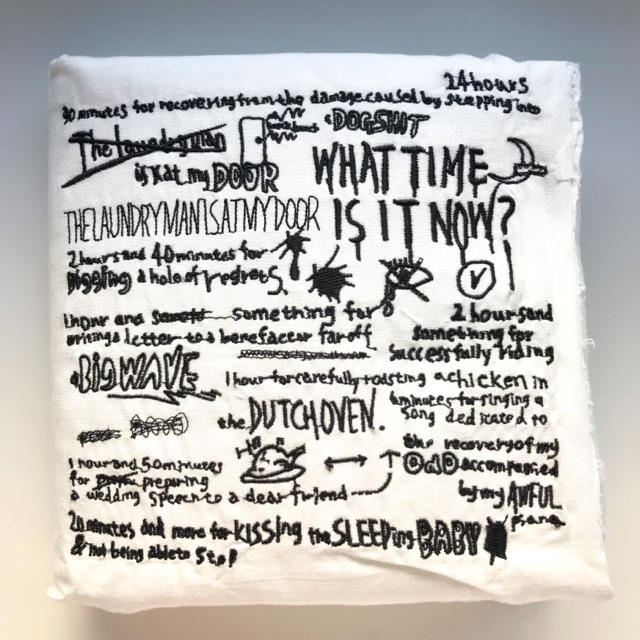 24 hours
30 minutes for recovering from the damage caused by stepping into
a DOGSHIT
The laundryman
is at my DOOR
WHAT TIME
IS IT NOW?
THE LAUNDRYMAN IS AT MY DOOR
2 hours and 40 minutes for
Digging a hole of regrets.
1 hour and something for
writing a letter to a benefactor far off
2 hours and
something for
successfully riding
a BIG WAVE
1 hour for carefully roasting a chicken in
the DUTCH OVEN.
minutes for singing a
song dedicated to
the recovery of my
accompanied
by my AWFUL
piano
1 hour and 50 minutes
for preparing
a wedding speech to a dear friend
minutes and more for KISSING the SLEEPING BABY
& not being able to stop